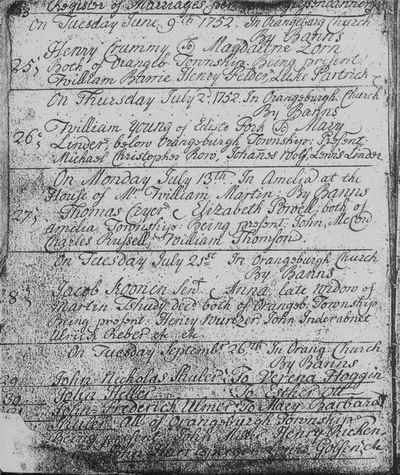 Register of Marriages
On Tuesday June 9th 1752. In Orangeburg Church
By Banns
Henry Crummy To Magdalene Zorn
25; Both of Orangeb Township Being present
William Barrie Henry Felder, Luke Patrick
On Thursday July 2d. 1752. In Orangeburgh Church
By Banns
26; William Young of Edisto Fork To Mary
Linder, below Orangeburgh Township; Present
Michael Christopher Row, Johanes Wolf, Lewis Linder
On Monday July 13th In Amelia at the
House of Mr William Martin; By Banns
27; Thomas Cryer & Elizabeth Powell; both of
Amelia Township. Being present; John McCord
Charles Russell, William Thomson
On Tuesday July 21st In Orangeburgh Church
By Banns
8; Jacob Koonen Senr & Anna late widow of
Martin Tshudy decd both of Orangeb Township
Being present; Henry Wurtzer, John Inderabnet
Ulrick Reber etc
On Tuesday Septembr 26th In Orang. Church
By Banns
29 John Nicholas Shuler To Verena Hoggin
30 John Heller To Esther Ott
31 John Frederick Ulmer To Mary Barbara
Shuler all of Orangeburgh Township
Being present John Henry Ricken